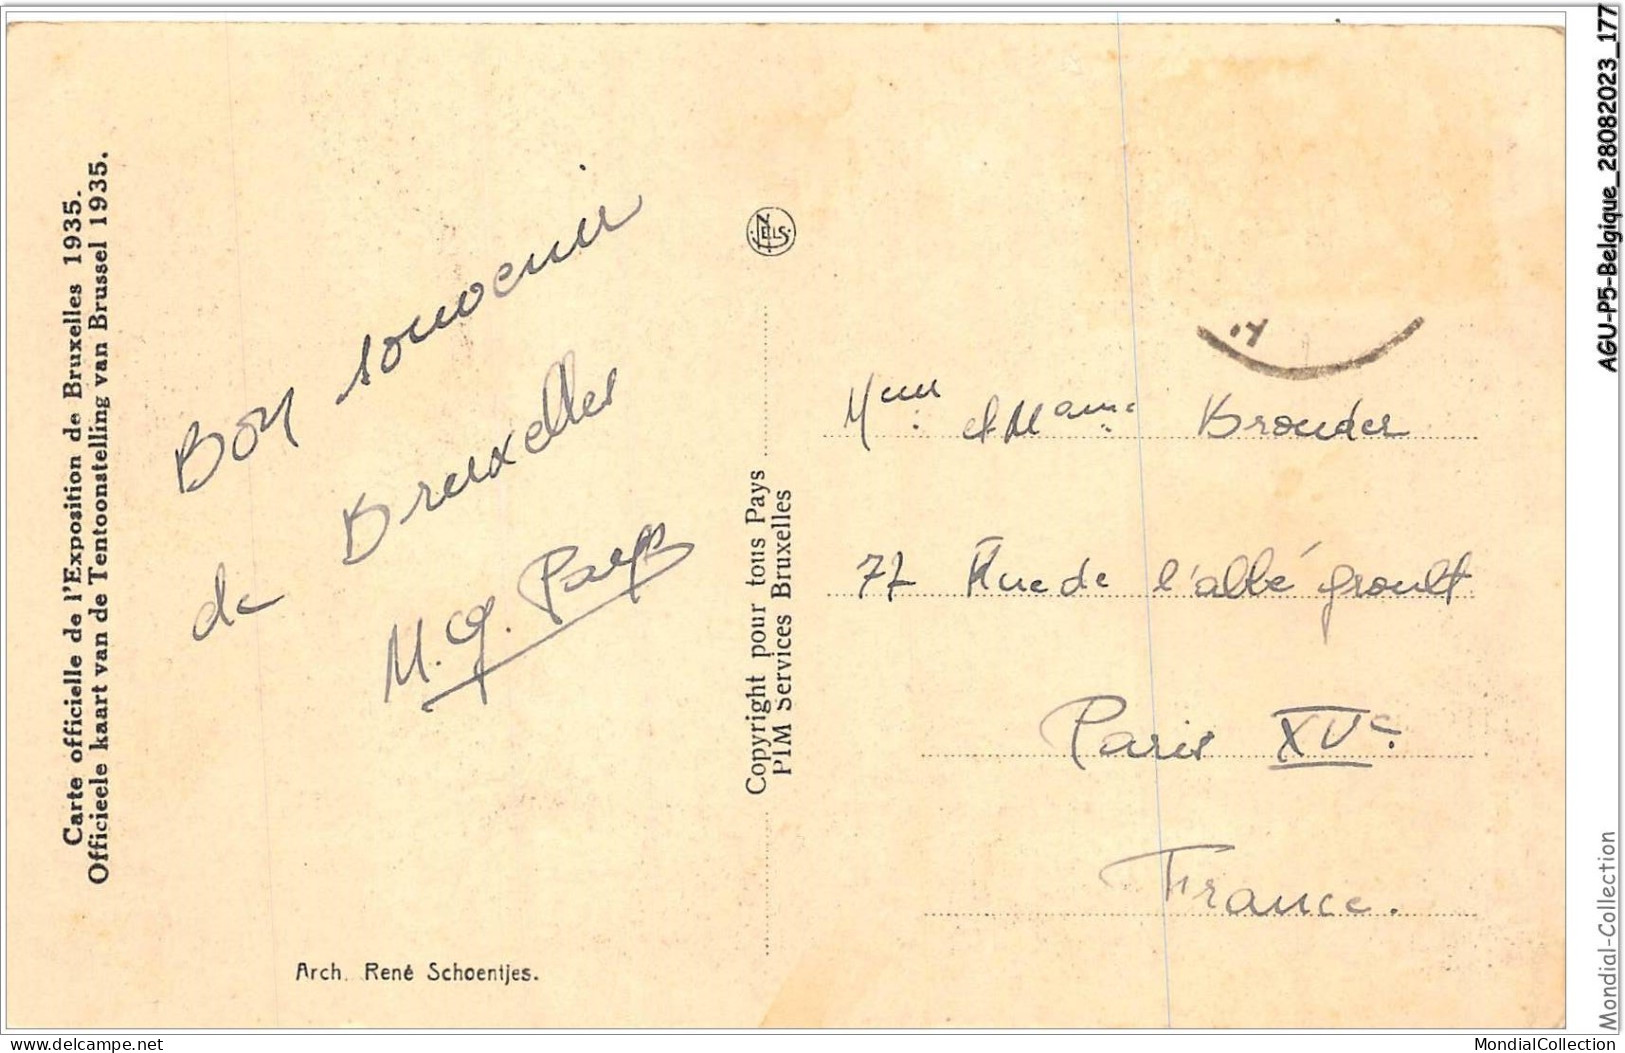 Carte officielle de l'Exposition de Bruxelles 1935.
Officieele kaart van de Tentoonstelling van Brussel 1935.
Bon souvenir
de Bruxelles
M. G. Pays
Arch. René Schoentjes.
NELS.
Copyright pour tous Pays
PIM Services Bruxelles
et Brouder
77 Rue de l'abbé groult
Paris XVe.
France.
AGU-P5-Belgique_28082023_177
Mondial-Collection
www.delcampe.net
MondialCollection